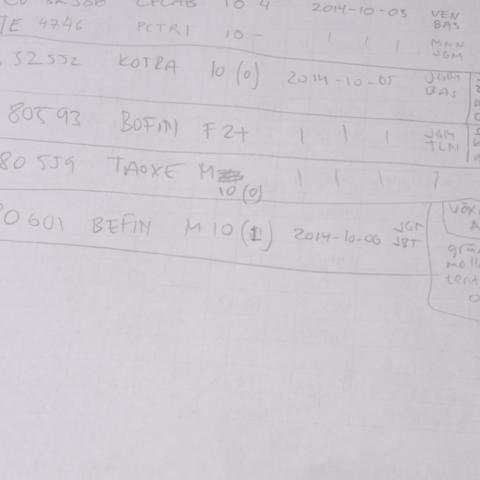 10 4 2014-10-03 VEN
BAS
TE 4746 PCTRI 10 - | | | MNN
JGM
32552 KOTRA 10 (0) 2014-10-05 JGM
BAS
80593 BOFIN F 2+ | | | JGM
TLN
80559 TAOXE M 10 (0) | | | |
0601 BEFIN M 10 (1) 2014-10-06 JGM
JBT